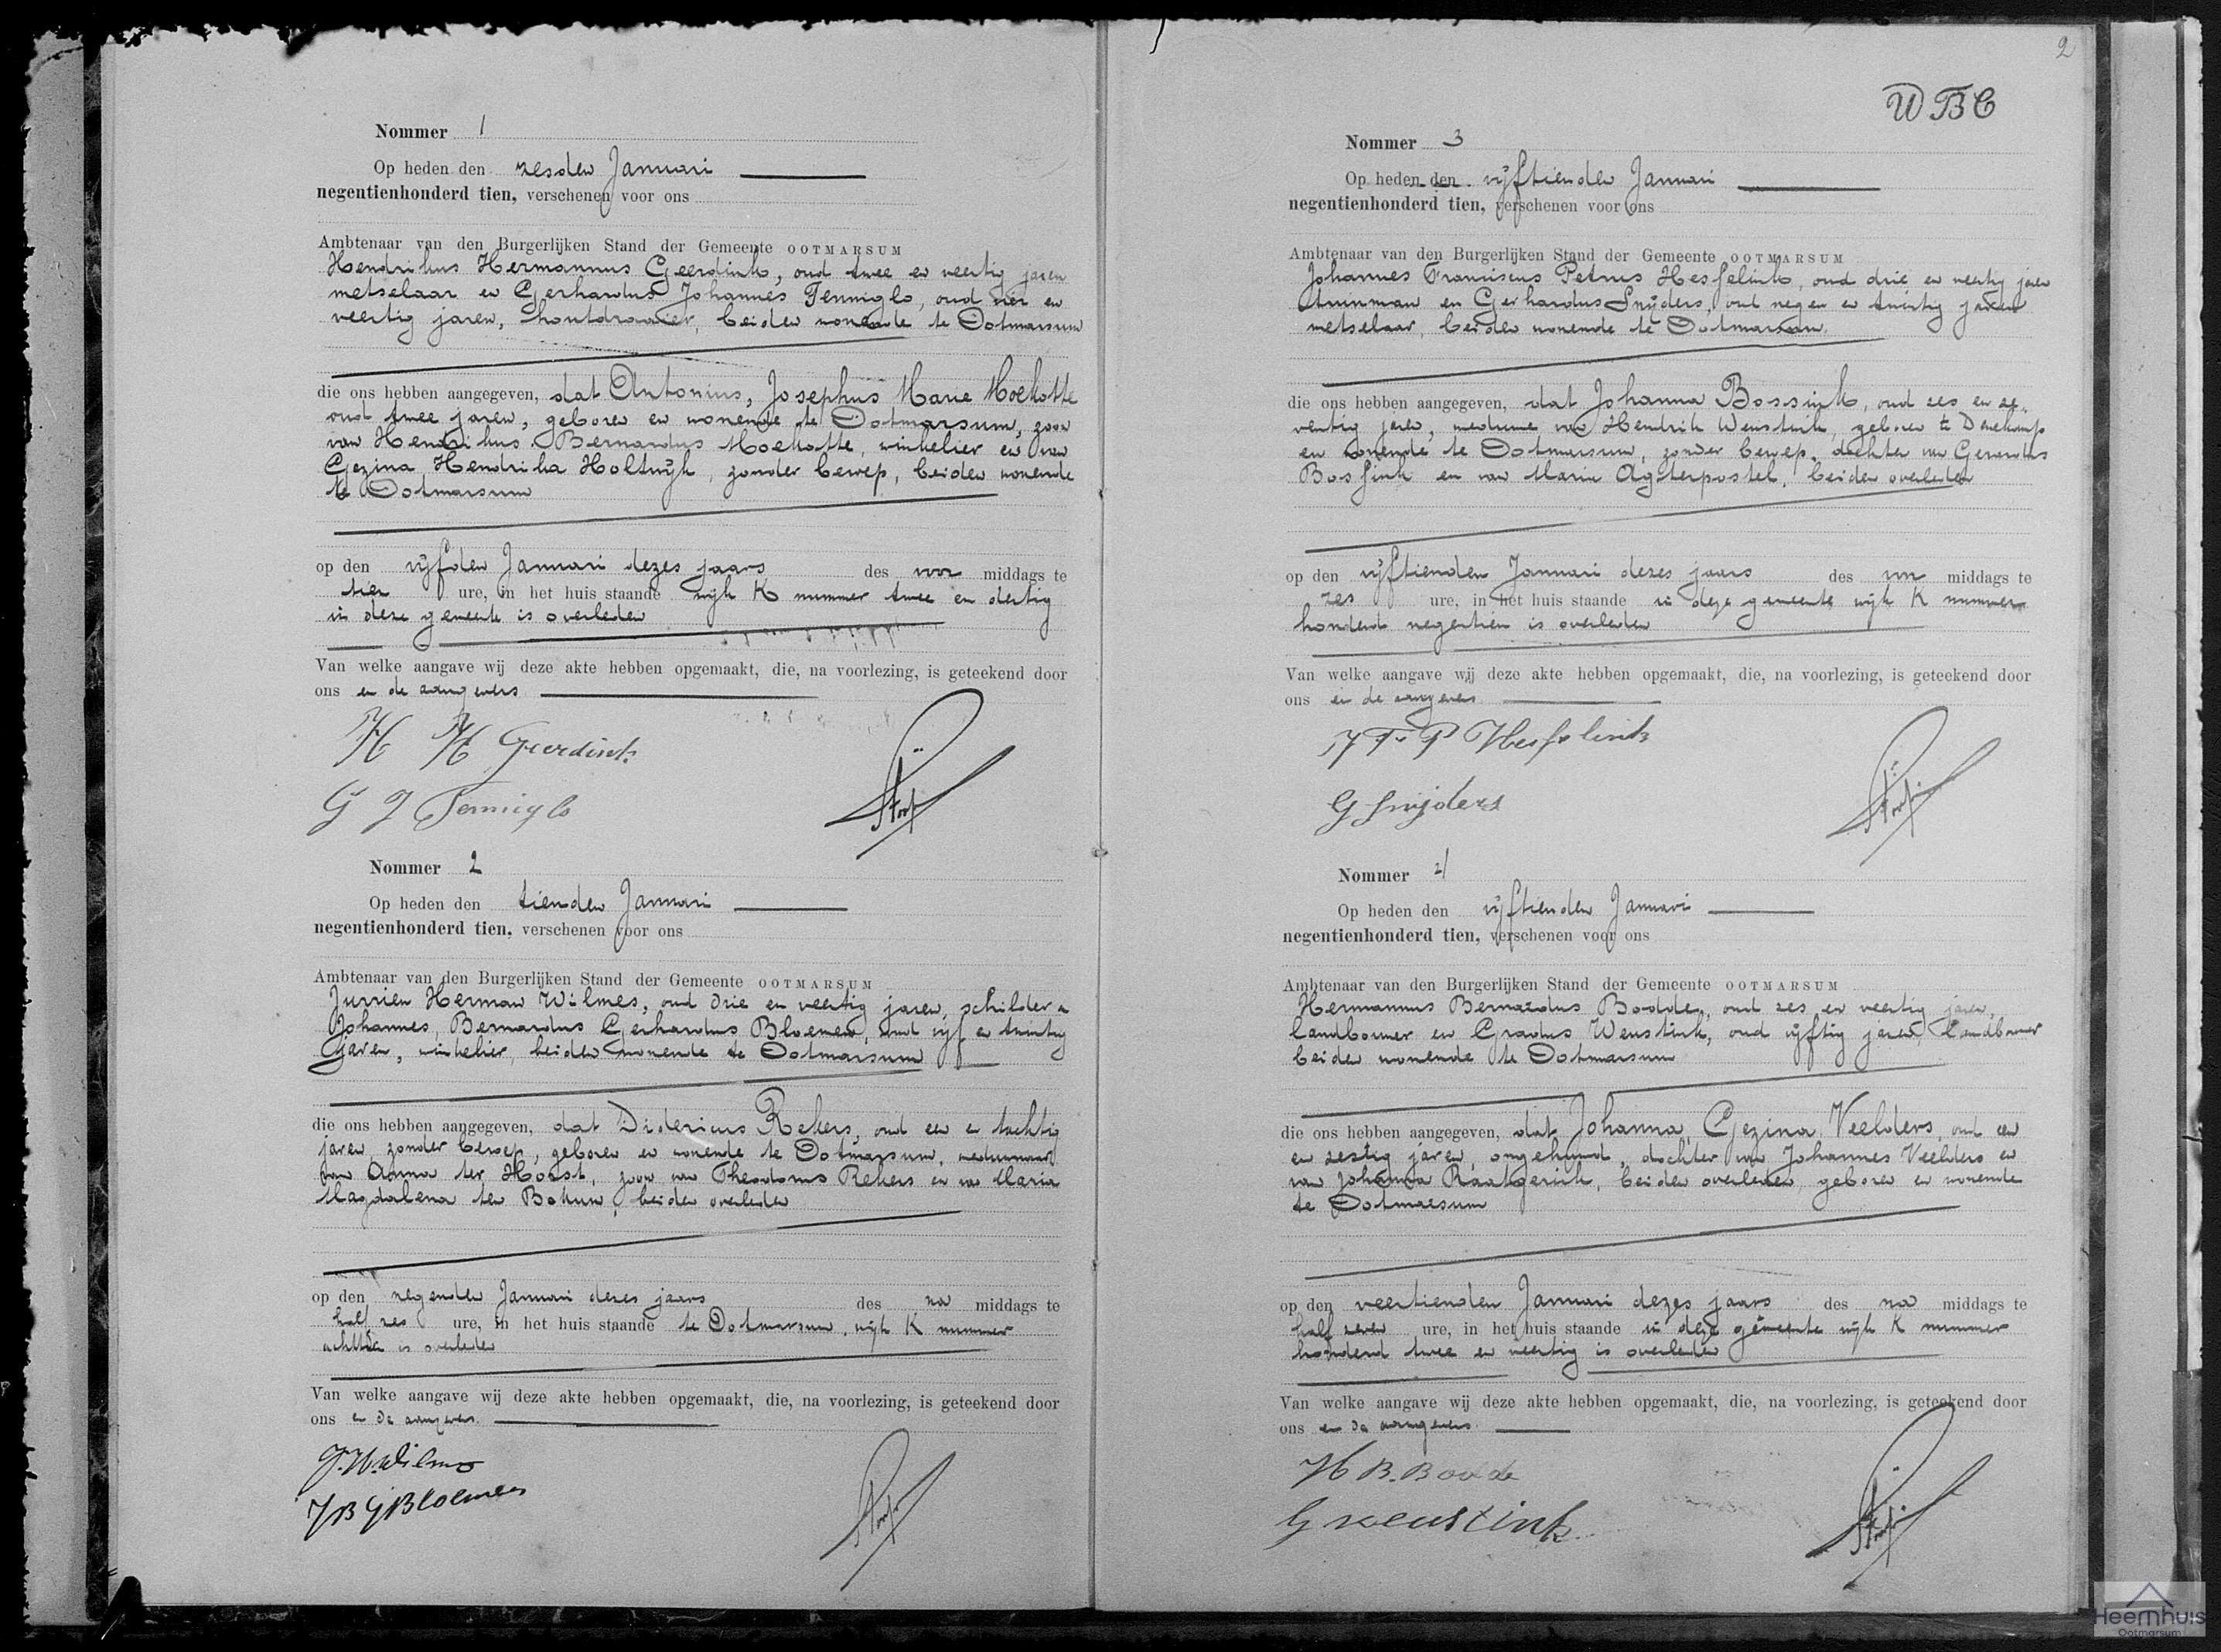 Nommer 1
Op heden den zesden Januari
negentienhonderd tien, verschenen voor ons
Ambtenaar van den Burgerlijken Stand der Gemeente OOTMARSUM
Hendrikus Hermannus Geerdink, oud twee en veertig jaren
metselaar en Gerhardus Johannes Tenniglo, oud vier en
veertig jaren, houtdraaier, beiden wonende te Ootmarsum
die ons hebben aangegeven, dat Antonius, Josephus Marie Moekotte
oud twee jaren, geboren en wonende te Ootmarsum, zoon
van Hendrikus Bernardus Moekotte, winkelier en van
Gezina Hendrika Holtwijk, zonder beroep, beiden wonende
te Ootmarsum
op den vijfden Januari dezes jaars des voor middags te
tien ure, in het huis staande wijk K nummer twee en dertig
in deze gemeente is overleden
Van welke aangave wij deze akte hebben opgemaakt, die, na voorlezing, is geteekend door
ons en de aangevers
H H Geerdink
G J Tenniglo
Nommer 2
Op heden den tienden Januari
negentienhonderd tien, verschenen voor ons
Ambtenaar van den Burgerlijken Stand der Gemeente OOTMARSUM
Jurrien Herman Wilmes, oud drie en veertig jaren, schilder en
Johannes, Bernardus Gerhardus Bloemen, oud vijf en twintig
jaren, winkelier, beiden wonende te Ootmarsum
die ons hebben aangegeven, dat Didericus Rekers, oud een en tachtig
jaren, zonder beroep, geboren en wonende te Ootmarsum, weduwnaar
van Anna ter Horst, zoon van Theodorus Rekers en van Maria
Magdalena ten Bokum, beiden overleden
op den negenden Januari dezes jaars des na middags te
half zes ure, in het huis staande te Ootmarsum, wijk K nummer
achttien is overleden
Van welke aangave wij deze akte hebben opgemaakt, die, na voorlezing, is geteekend door
ons en de aangevers.
J.H. Wilmes
J B G Bloemen
2
WBC
Nommer 3
Op heden den vijftienden Januari
negentienhonderd tien, verschenen voor ons
Ambtenaar van den Burgerlijken Stand der Gemeente OOTMARSUM
Johannes Franciscus Petrus Hesselink, oud drie en veertig jaren
en Gerhardus Snijders, oud negen en twintig jaren
metselaar, beiden wonende te Ootmarsum.
die ons hebben aangegeven, dat Johanna Bossink, oud zes en ze-
ventig jaren, weduwe van Hendrik Weustink, geboren te Denekamp
en wonende te Ootmarsum, zonder beroep, dochter van Gerardus
Bossink en van Maria Agterpostel, beiden overleden
op den vijftienden Januari dezes jaars des voor middags te
zes ure, in het huis staande in deze gemeente wijk K nummer
honderd negentien is overleden
Van welke aangave wij deze akte hebben opgemaakt, die, na voorlezing, is geteekend door
ons en de aangevers
J F P Hesselink
G Snijders
Nommer 4
Op heden den vijftienden Januari
negentienhonderd tien, verschenen voor ons
Ambtenaar van den Burgerlijken Stand der Gemeente OOTMARSUM
Hermannus Bernardus Bodde, oud zes en veertig jaren,
landbouwer en Gradus Weustink, oud vijftig jaren, landbouwer
beiden wonende te Ootmarsum
die ons hebben aangegeven, dat Johanna, Gezina Veelders, oud een
en zestig jaren, ongehuwd, dochter van Johannes Veelders en
van Johanna Raakgerink, beiden overleden, geboren en wonende
te Ootmarsum
op den veertienden Januari dezes jaars des na middags te
half zeven ure, in het huis staande in deze gemeente wijk K nummer
honderd twee en veertig is overleden
Van welke aangave wij deze akte hebben opgemaakt, die, na voorlezing, is geteekend door
ons en de aangevers.
H B. Bodde
G Weustink
Heemhuis
Ootmarsum